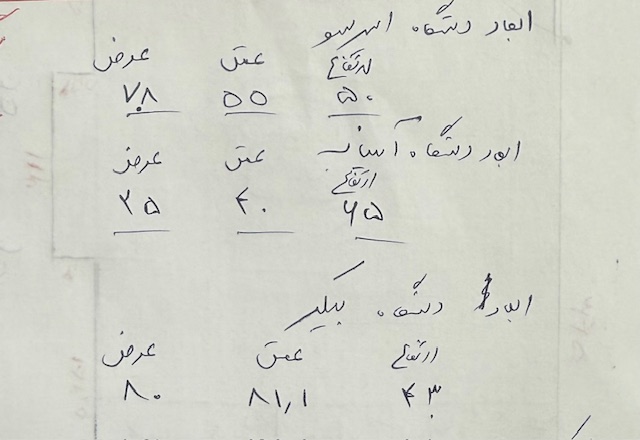 ابعاد دستگاه اسپرسو
ارتفاع عمق عرض
۵۰ ۵۵ ۷۰۸
ابعاد دستگاه آسیاب
ارتفاع عمق عرض
۶۵ ۴۰ ۲۵
ابعاد دستگاه
ارتفاع عمق عرض
۴۳ ۸۱٫۱ ۸۰